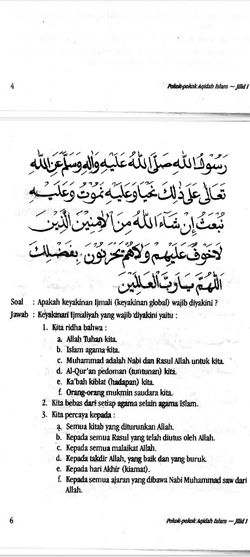 4 Pokok-pokok Aqidah Islam — Jilid 1
رَسُولُ اللهِ صَلَّى اللهُ عَلَيْهِ وَالِهِ وَسَلَّمَ عَنِ اللهِ
تَعَالَى عَلَى ذٰلِكَ نَحْيَا وَعَلَيْهِ نَمُوتُ وَعَلَيْهِ
نُبْعَثُ إِنْ شَاءَ اللهُ مِنَ الْاٰمِنِينَ الَّذِينَ
لَاخَوْفٌ عَلَيْهِمْ وَلَاهُمْ يَحْزَنُونَ بِفَضْلِكَ
اللّٰهُمَّ يَارَبَّ الْعَالَمِينَ
Soal : Apakah keyakinan Ijmali (keyakinan global) wajib diyakini ?
Jawab : Keyakinan Ijmaliyah yang wajib diyakini yaitu :
1. Kita ridha bahwa :
a. Allah Tuhan kita.
b. Islam agama kita.
c. Muhammad adalah Nabi dan Rasul Allah untuk kita.
d. Al-Qur'an pedoman (tuntunan) kita.
e. Ka'bah kiblat (hadapan) kita.
f. Orang-orang mukmin saudara kita.
2. Kita bebas dari setiap agama selain agama Islam.
3. Kita percaya kepada :
a. Semua kitab yang diturunkan Allah.
b. Kepada semua Rasul yang telah diutus oleh Allah.
c. Kepada semua malaikat Allah.
d. Kepada takdir Allah, yang baik dan yang buruk.
e. Kepada hari Akhir (kiamat).
f. Kepada semua ajaran yang dibawa Nabi Muhammad saw dari
Allah.
6 Pokok-pokok Aqidah Islam — Jilid 1